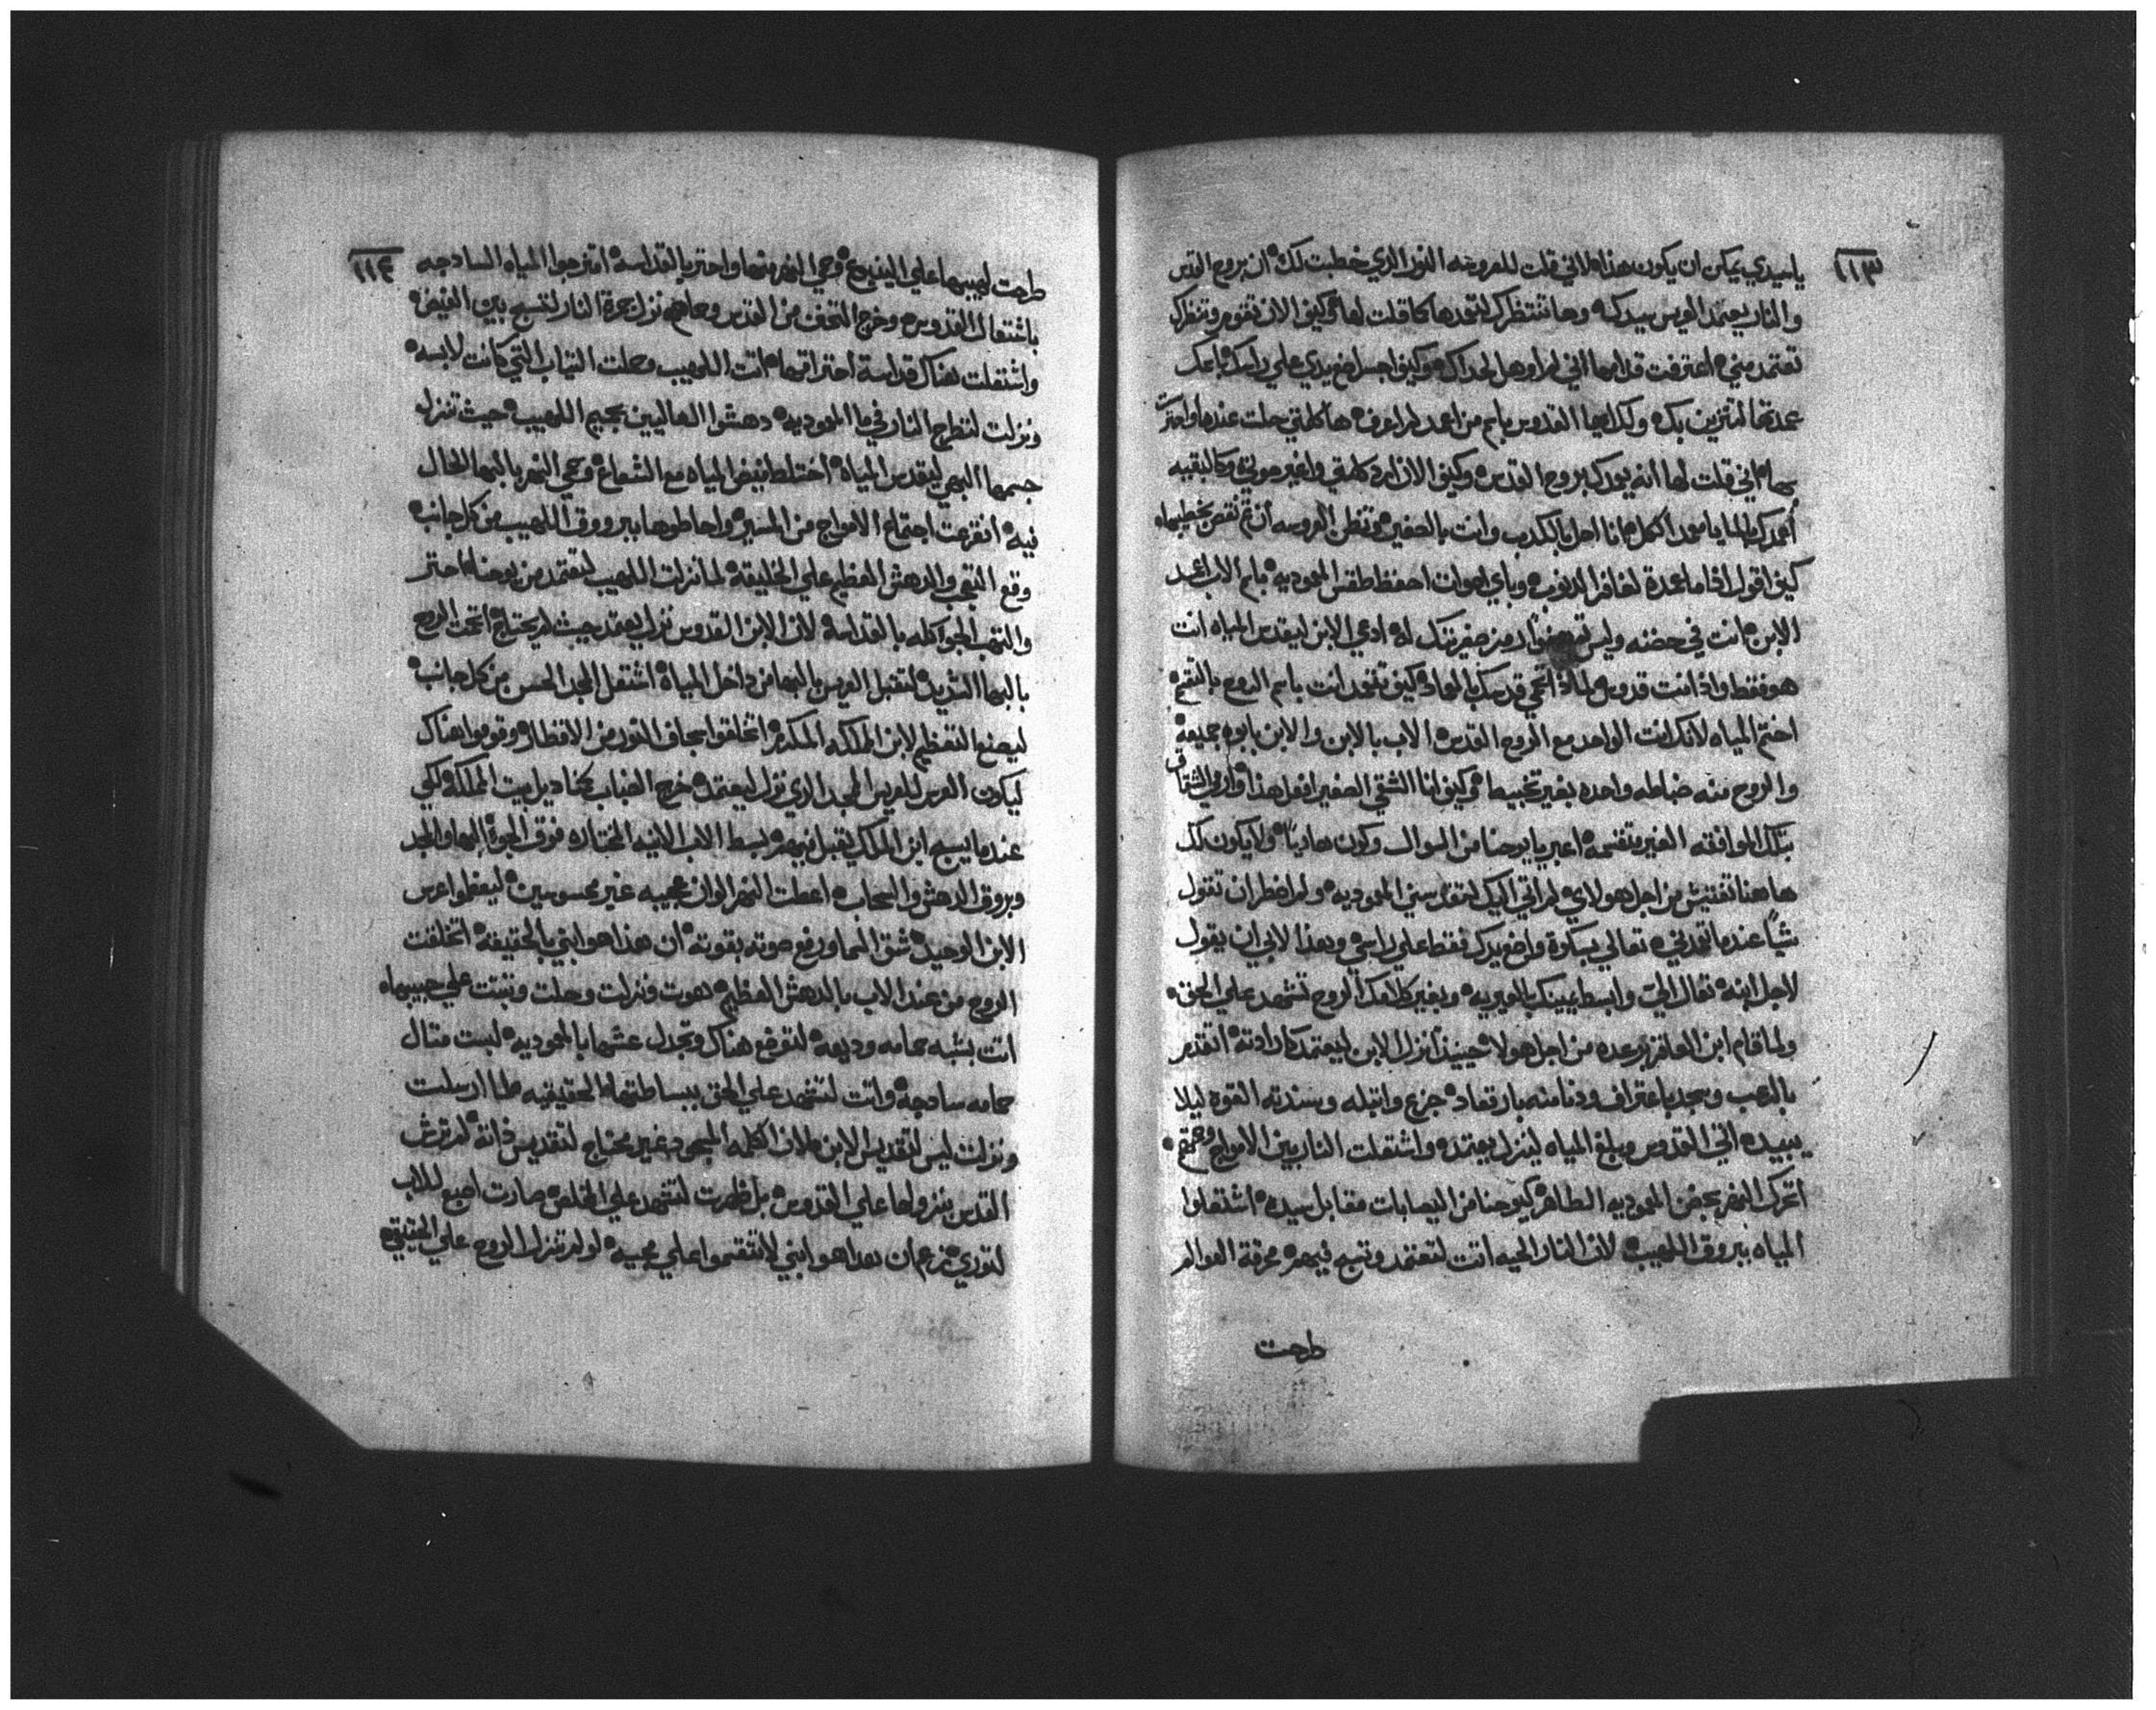 ١١٣
يا سيدي يمكن ان يكون هذا ه لاني قلت للعروسه النور الذي خطبت لك ه ان بروح القدس
والنار يعتمد العريس سيدكه وها تنتظرك لتعمدها كما قلت لها كيف الان تقوم وتنظرك
تعتمد مني ه اعترفت قدامها انني لم اوهل لحداك ه وكيف اجسر اضع يدي علي راسك باعك
عمدتها لتتزين بك ه ولك ايها القدوس باسم من اعمد لم اعرف ه ها كلمتي حلت عندها واهتزت
بها ه اني قلت لها انه يعمدك بروح القدس ه وكيف الان ارد كلمتي واغير صوتي وكالبقيه
اعمدك بالما يا عمود الكل ه انا اصل بالكدب وانت بالصغير ه وتظن العروسه ان تم نقص بخطيبها ه
كيف اقول اذا ما اعمدة لغافر الدنوب ه وباي اصوات احفظ طقس المعموديه ه باسم الاب اعمد
الابن ه انت في حضنه وليس صغيرتك له ادعي الابن ليقدس المياه انت
هو فقط واذ انت قدوس لماذا قدسك بالعماد ه كيف تعمد انت باسم الروح بالتقدم
اختم المياه لانك انت الواحد مع الروح القدس ه الاب بالابن والابن بابوه جميعه
والروح منه ضابطه واحده بغير تخبيط ه كيف انا الشقي الصغير افعل هذا ه وارمي الشقاق
بتلك الموافقه الغير متقسمه ه اعبر يا يوحنا من السوال وكون هاديا ه ولا يكون لك
هاهنا تفتيش من اجل هولاي ه لم اتي اليك لتقدسني المعموديه ه ولم اضطر ان تقول
شيا عندما تعمدني ه تعالي بسكوة واضع يدك فقط علي راسي ه وهذا لابي ان يقول
لاجل ابنه ه تعال الي وابسط يمينك بالعبوديه ه وبغير كلامك الروح تشهد علي الحق ه
ولما قام ابن العاقر برعده من اجل هولا ه حينيذ نزل الابن ليعتمد كارادته ه اتقدم
بالرعب وسجد باعتراف ودنا منه بارتعاد ه جزع وابتله وسندته القوه ليلا
يبيد ه اتي القدوس وبلغ المياه لينزل يعتمد ه واشتعلت النار بين الامواج
اتحرك النهر بحضن المعموديه الطاهر ه كيوحنا من اليصابات مقابل سيده ه اشتعلوا
المياه ببروق اللهيب ه لان النار الحيه اتت لتعتمد وتسبح فيهم ه محرقة العوالم
طرحت
١١٤
طرحت لهيبها علي الينبوع ه وحمي النهر منها واحتر بالقداسه ه امتزجوا المياه السادجه
باشتعال القدوس ه وخرج التحف من القدس وحاهم نزل جمرة النار لتسبح بين الفيض ه
واشتعلت هناك قداسة احتراقها ه اتت اللهيب وحلت التياب التي كانت لابسه ه
ونزلت لتطرح النار في ما المعموديه ه دهشوا العاليين بجيم اللهيب ه حيث تنزل
جسمها البهي ليقدس المياه ه اختلط فيض المياه مع الشعاع ه وحمي النهر بالبها الحال
فيه ه انفزعت اجتماع الامواج من المسير ه واحاطوها ببروق اللهيب من كل جانب ه
وقع التعجب والدهش العظيم علي الخليقه ه لما نزلت اللهيب لتعتمد من يوحنا ه احتر
والتهب الجو كله بالقداسه ه لان الابن القدوس نزل يعتمد حيث لم يحتاج ه اتحمت الروح
بالبها الشديد ه لتقبل العريس بالبها من داخل المياه ه اشتعل المجد الحسن من كل جانب ه
ليصنع التعظيم لابن الملكه المكرم ه اتخلقوا سجاف النور من الاقطار ه وقوموا هناك
ليكون العرس للعريس المجد الذي نزل ليعتمد ه خرج الضباب كمناديل بيت المملكه ه لكي
عندما يسبح ابن الملك يتقبل فيهم ه بسط الاب الانيه المختاره فوق الجو ه البها والمجد
وبروق الدهش والسحاب ه اعطت النهر الوان عجيبه غير محسوسين ه ليعظموا عرس
الابن الوحيد ه شق السما ورفع صوته بقوته ه ان هذا هو ابني بالحقيقه ه اتخلفت
الروح من عند الاب بالدهش العظيم ه صوت ونزلت وحلت وتبتت علي حبيبها ه
اتت بشبه حمامه وديعه ه لترفع هناك وتجدل عشها بالمعموديه ه لبست متال
حمامه سادجه ه واتت لتشهد علي الحق ببساطتها ه الحقيقيه لما ارسلت
ونزلت ليس لتقديس الابن ه لان الكلمه المسجود غير محتاج لتقديس ذاته ه لم ترش
القدس بنزولها علي القدوس ه بل ظهرت لتشهد علي المخلص ه صارت اصبع للاب
لتوري ه بزعم ان هدا هو ابني لا تنقسموا علي مجييه ه لو لم تنزل الروح علي الحقيقي ه